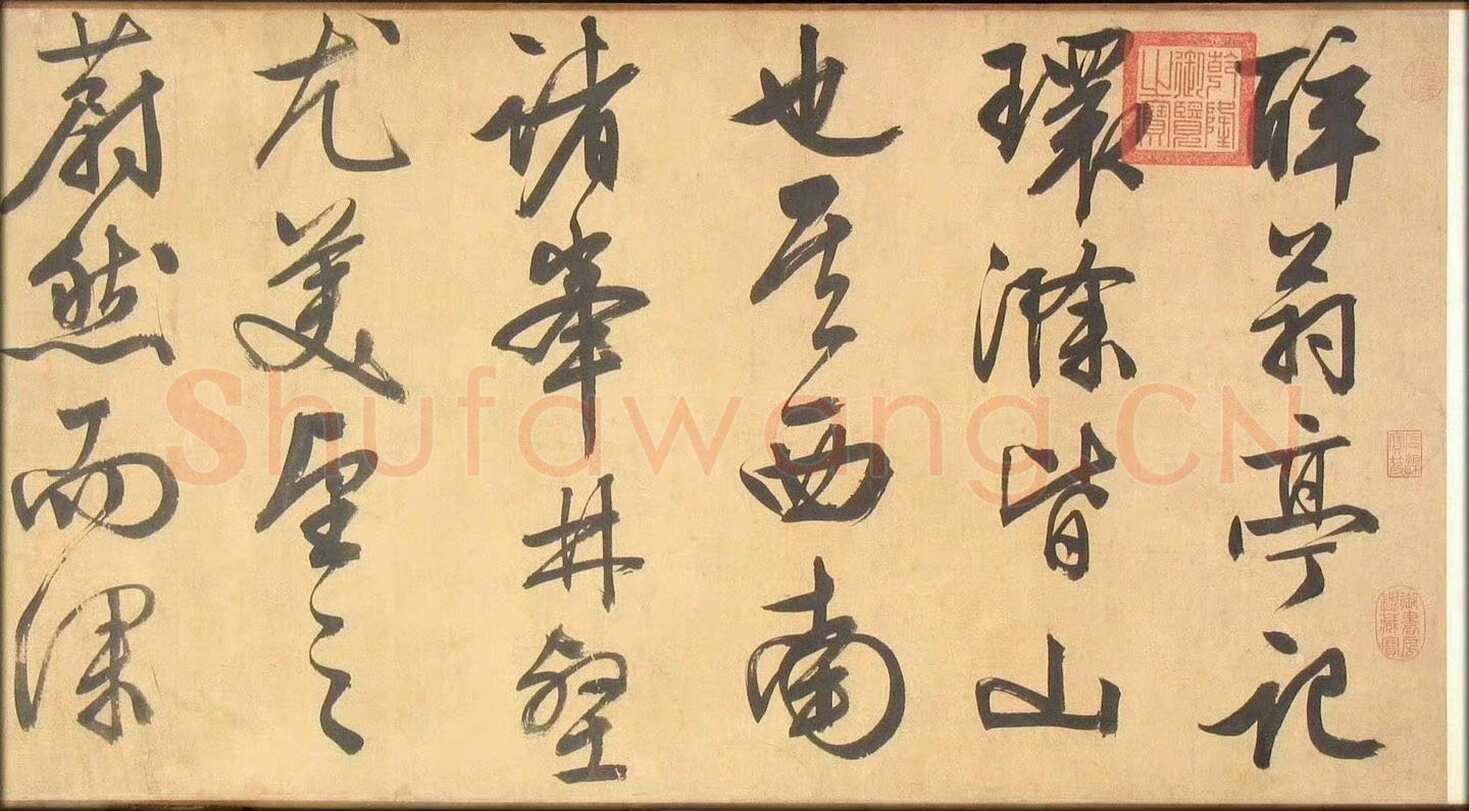 醉翁亭記
環滁皆山
也其西南
諸峯林壑
尤美望之
蔚然而深
乾隆御覽之寶
御書房鑑藏寶
Shufawang.CN